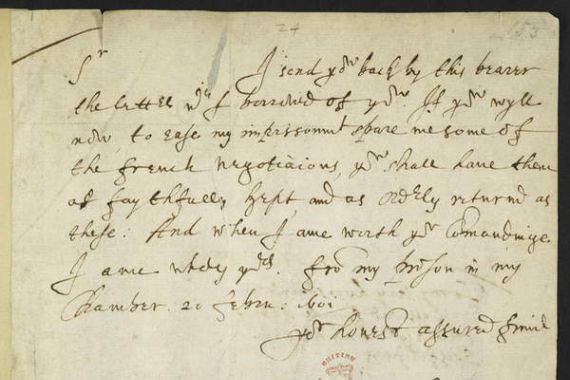 24
53
Sr
I send you back by this bearer
the letter wch I borrowed of you. If you wyll
now, to ease my imprissonmt spare me some of
the french negotiacions, you shall have them
as faythfully kept and as orderly returned as
these: And when I ame worth yor Comandinge
I ame wholy yors. fro my prison in my
Chamber. 20 febru: 1601
yor honest assured frind